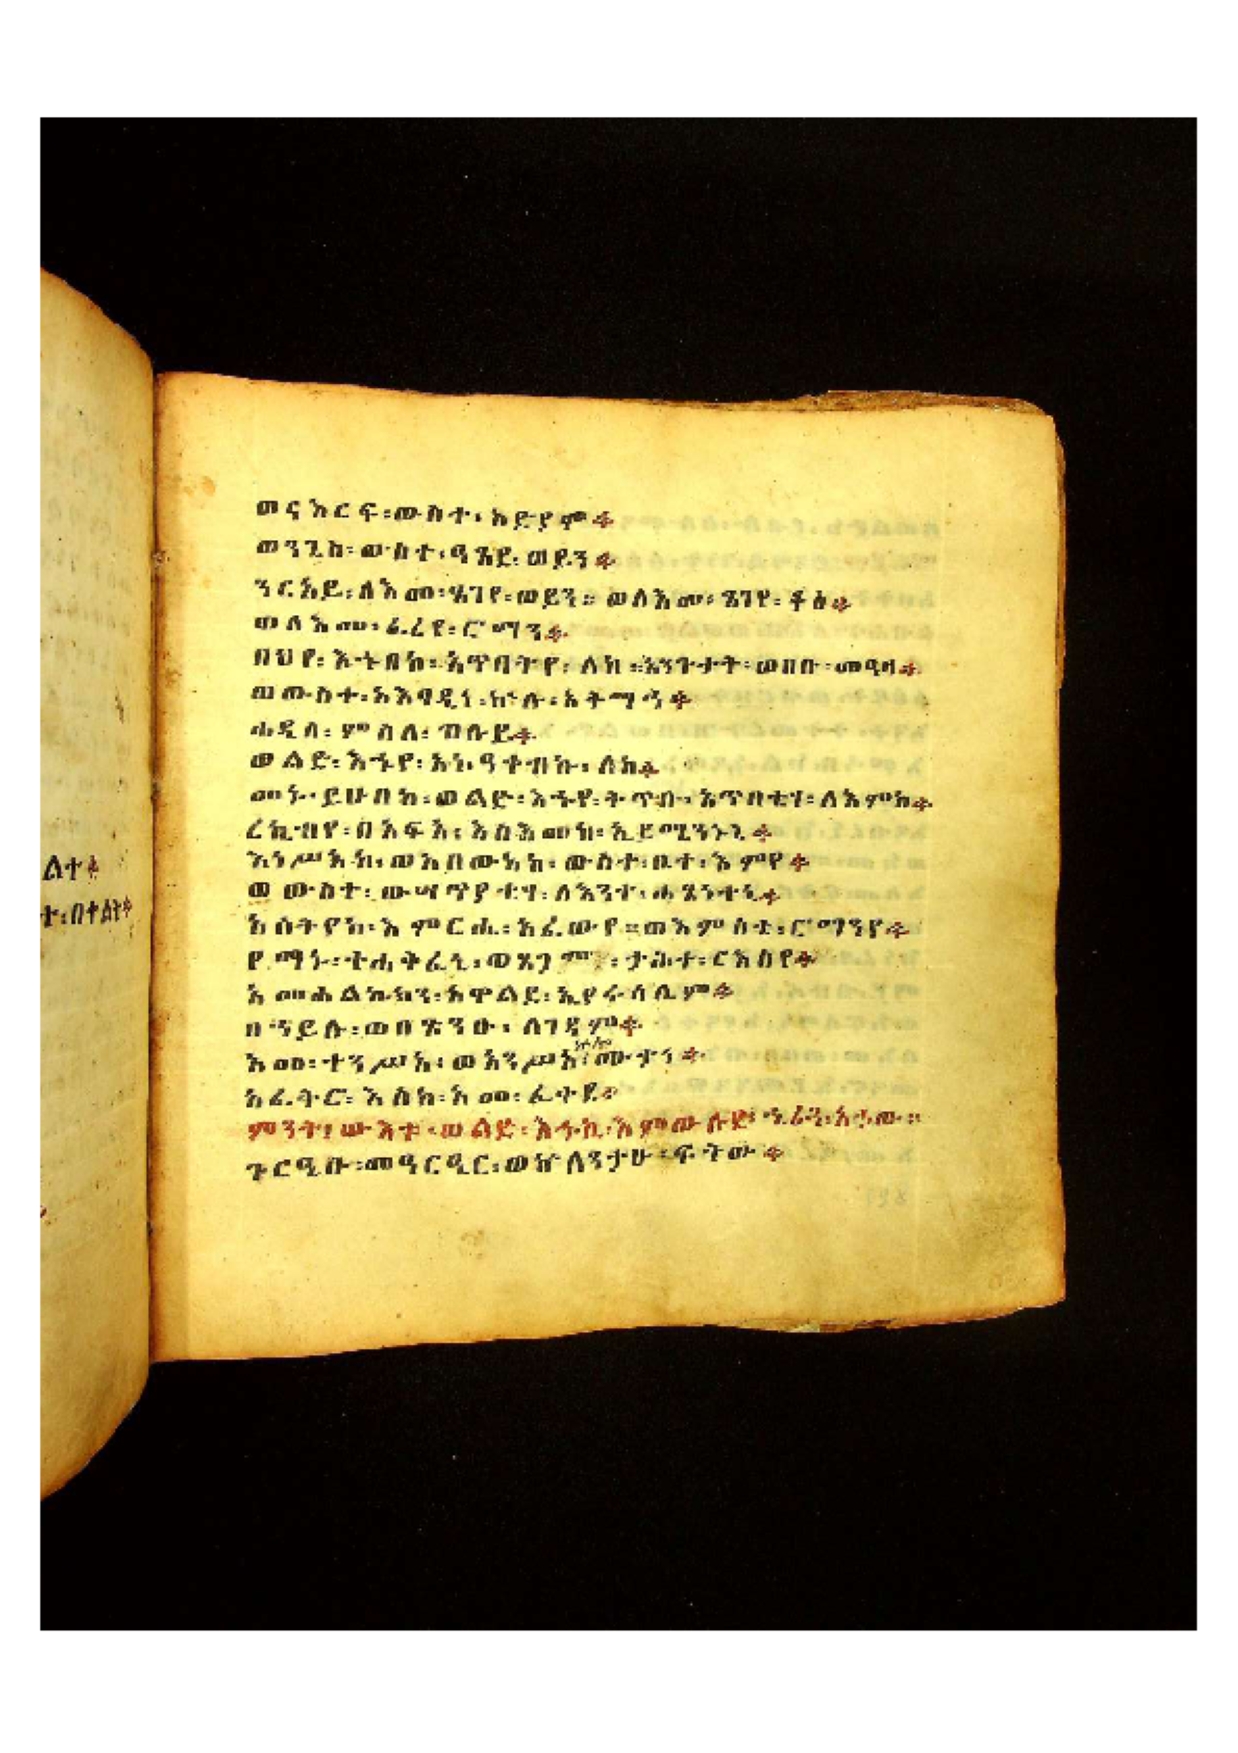 ልተ።
ተ፡በቀልት።
ወናእርፍ፡ውስተ፡አድያም።
ወንጊስ፡ውስተ፡ዓጸደ፡ወይን።
ንርአይ፡ለእመ፡ጸገየ፡ወይን። ወለእመ፡ጸገየ፡
ወለእመ፡ፈረየ፡ሮማን።
በህየ፡እሁበከ፡አጥባትየ፡ለከ።አንጉታት፡ወሀቡ፡መዓዛ።
ወውስተ፡አእዋዲነ፡ኵሉ፡አትማኅ።
ሐዲስ፡ምስለ፡ብሉይ።
ወልድ፡እኁየ፡አነ፡ዓቀብኩ፡ለከ።
መኑ፡ይሁበከ፡ወልድ፡እኁየ፡ትጥቡ፡አጥባቲሃ፡ለእምከ።
ረኪብየ፡በአፍአ፡እስእመከ፡ኢይሜንኑኒ።
እነሥአከ፡ወእበውአከ፡ውስተ፡ቤተ፡እምየ።
ወውስተ፡ውሣጥያቲሃ፡ለእንተ፡ሐፀነተኒ።
አሰትየከ፡እምርሒ፡አፈውየ።ወእምስቴ፡ሮማንየ።
የማኑ፡ተሐቅፈኒ፡ወፀጋም፡ታሕተ፡ርእስየ።
አመሐልኩክን፡አዋልደ፡ኢየሩሳሌም።
በኀይሉ፡ወበጽንዑ፡ለገዳም።
እመ፡ተንሥአ፡ወአንሥአ፡
አፈትር፡እስከ፡አመ፡ፈቀደ።
ምንት፡ውእቱ፡ወልድ፡እኁኪ፡እምውሉድ፡
ጕርዔሁ፡መዓርዒር፡ወኵለንታሁ፡ፍትው።